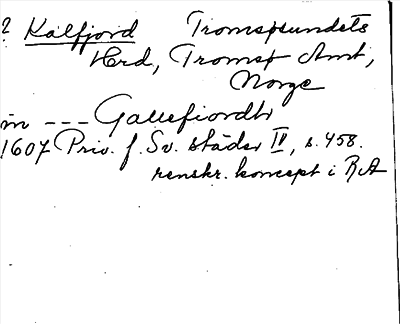 ? Kalfjord Tromsøsundets
Hrd, Tromsø Amt,
Norge
in --- Gallefiordh
1607 Priv. f. Sv. städer IV, s. 458.
renskr. koncept i RA